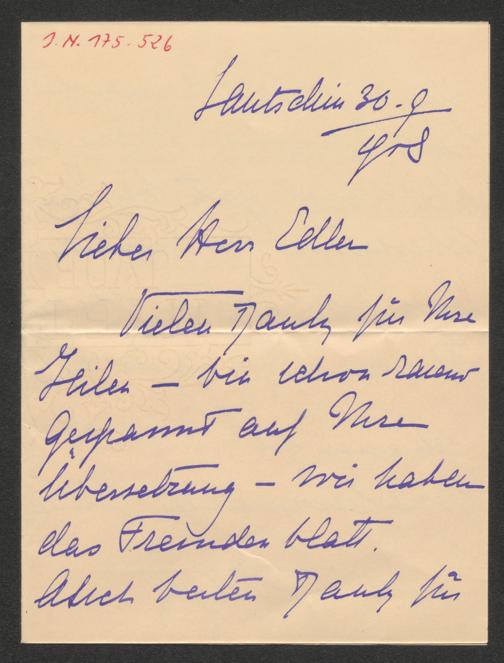 J. N. 175.526
Lautschin 30.9
908
Lieber Herr Edler
Vielen Dank für Ihre
Zeilen – bin schon rasend
gespannt auf Ihre
Übersetzung – wir haben
das Fremdenblatt.
Auch besten Dank für